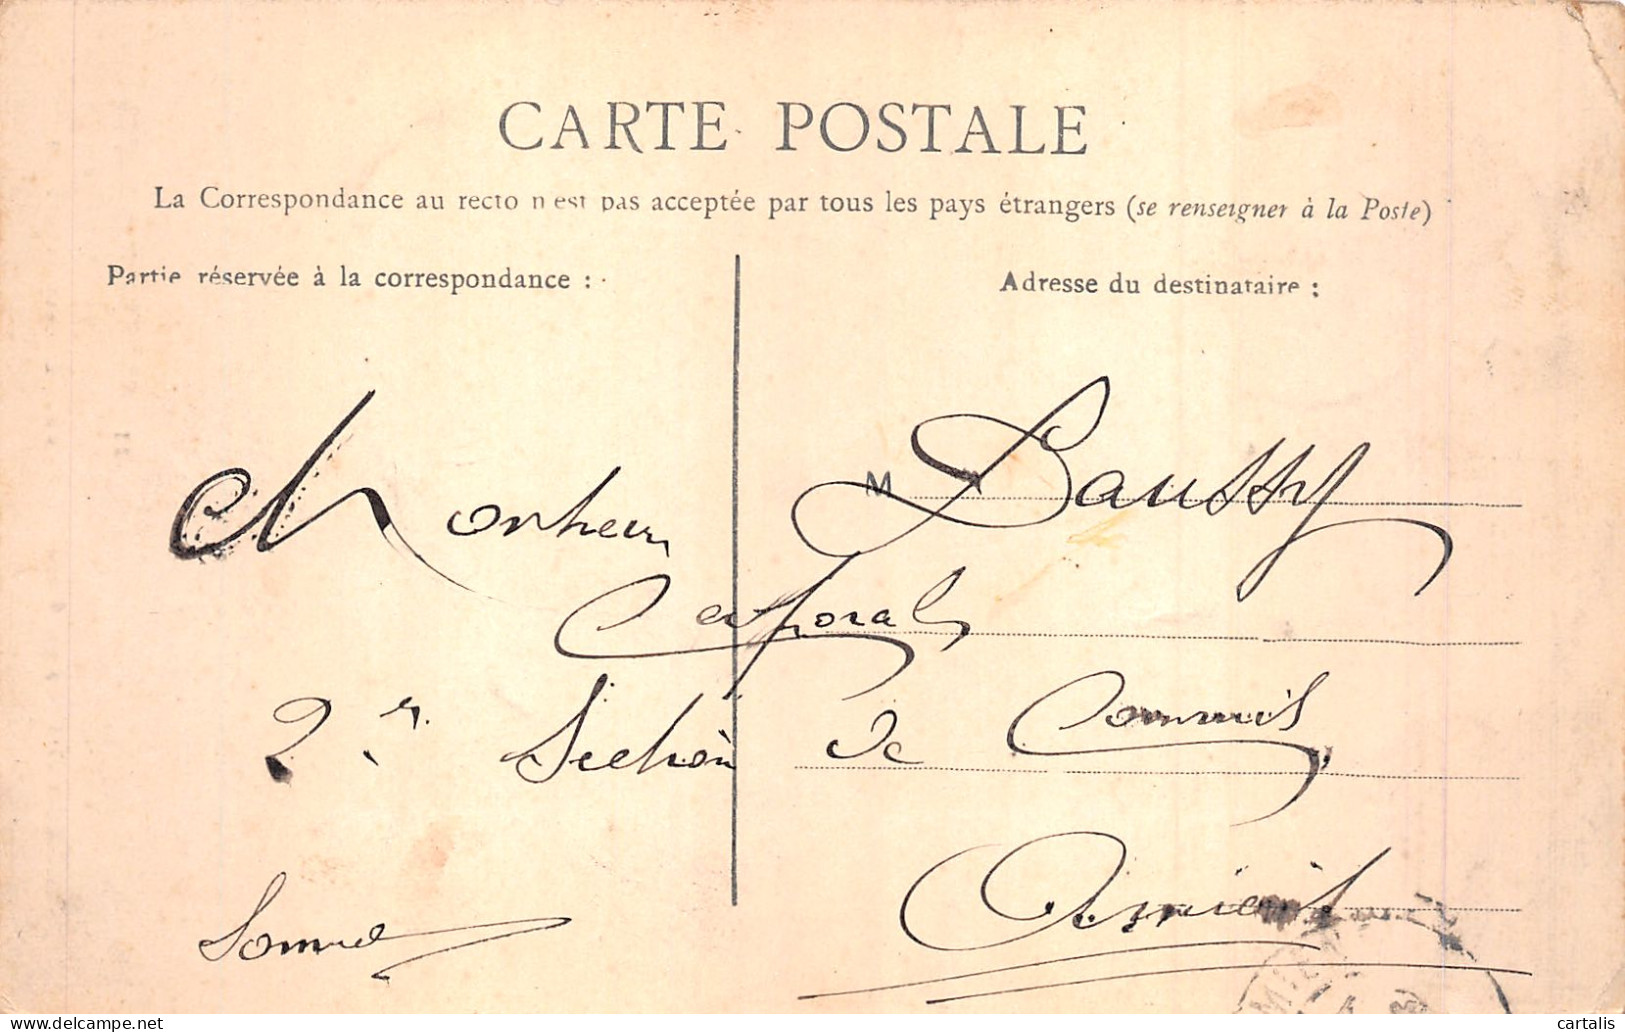 CARTE POSTALE
La Correspondance au recto n'est pas acceptée par tous les pays étrangers (se renseigner à la Poste)
Partie réservée à la correspondance :
Adresse du destinataire :
Monsieur M Baussy
Caporal
2e Section de Commis
Amiens
Somme
delcampe.net
cartalis